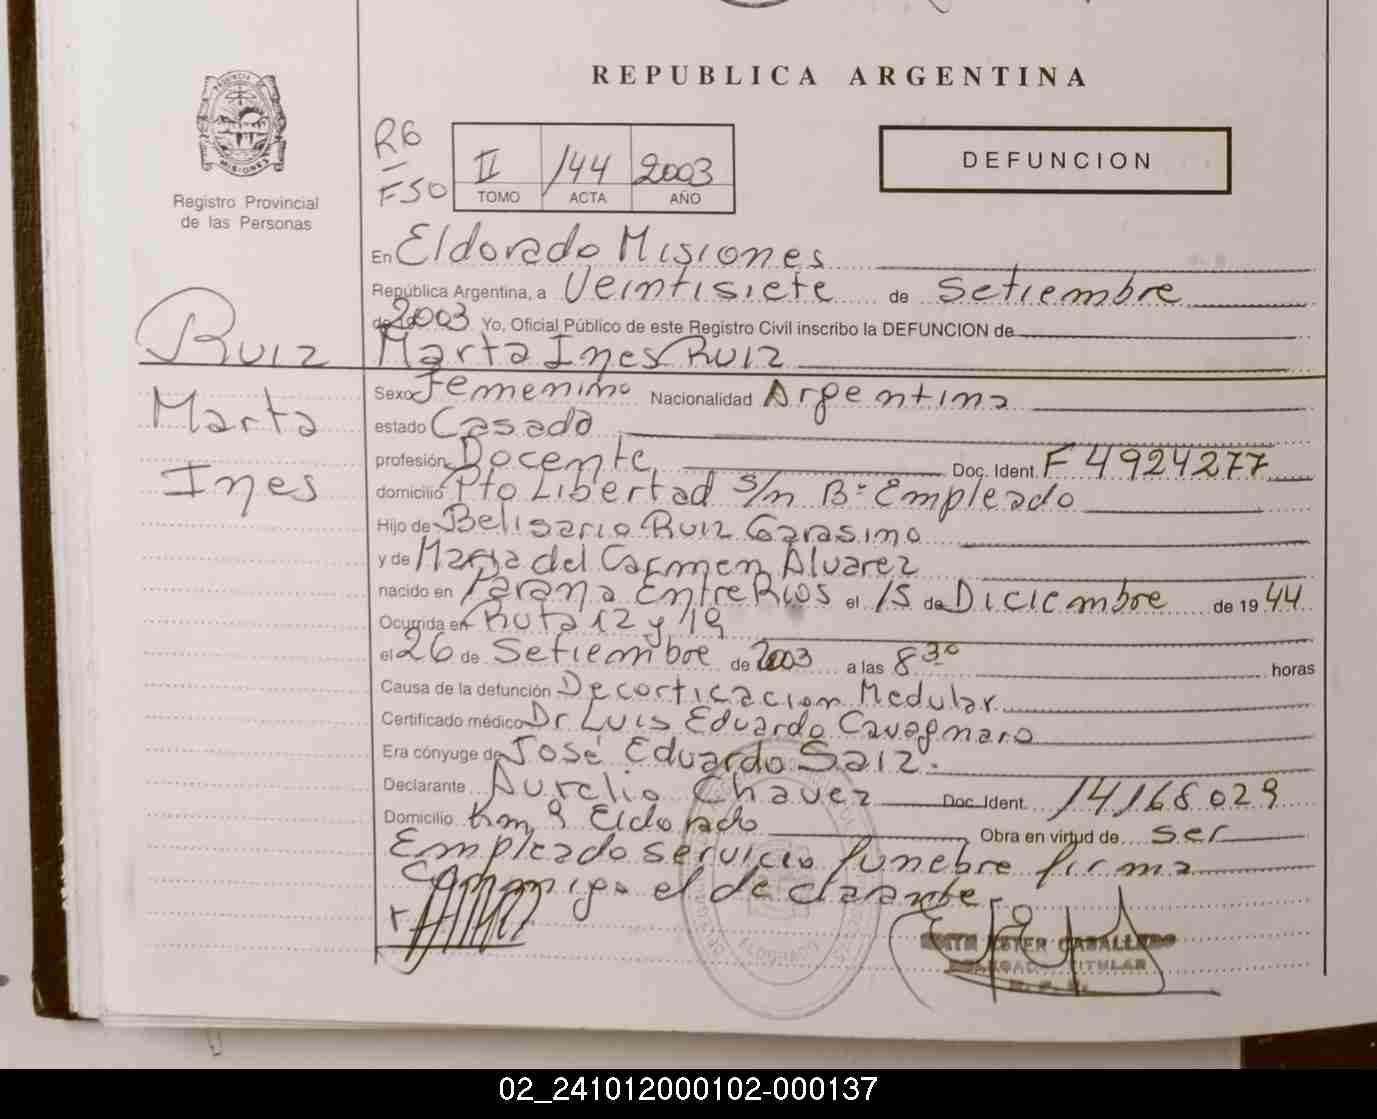 REPUBLICA ARGENTINA
PROVINCIA DE
MISIONES
Registro Provincial
de las Personas
R6
F50
II 144 2003
TOMO ACTA AÑO
DEFUNCION
En Eldorado Misiones
República Argentina, a Veintisiete de Setiembre
2003 Yo, Oficial Público de este Registro Civil inscribo la DEFUNCION de
Ruiz Marta Ines Ruiz
Marta
Ines
Sexo Femenino Nacionalidad Argentina
estado Casada
profesión Docente Doc. Ident. F 4924277
domicilio Pto Libertad s/n Bº Empleado
Hijo de Belisario Ruiz Garasino
y de Maria del Carmen Alvarez
nacido en Parana Entre Rios el 15 de Diciembre de 1944
Ocurrida en Ruta 12 y 19
el 26 de Setiembre de 2003 a las 8 30 horas
Causa de la defunción Decorticacion Medular
Certificado médico Dr Luis Eduardo Cavagnaro
Era cónyuge de José Eduardo Saiz.
Declarante Aurelio Chavez Doc. Ident. 14168029
Domicilio km 9 Eldorado Obra en virtud de ser
Empleado servicio funebre firma
Conmigo el declarante
ESTER CABALLERO
TITULAR
ELDORADO
02_241012000102-000137